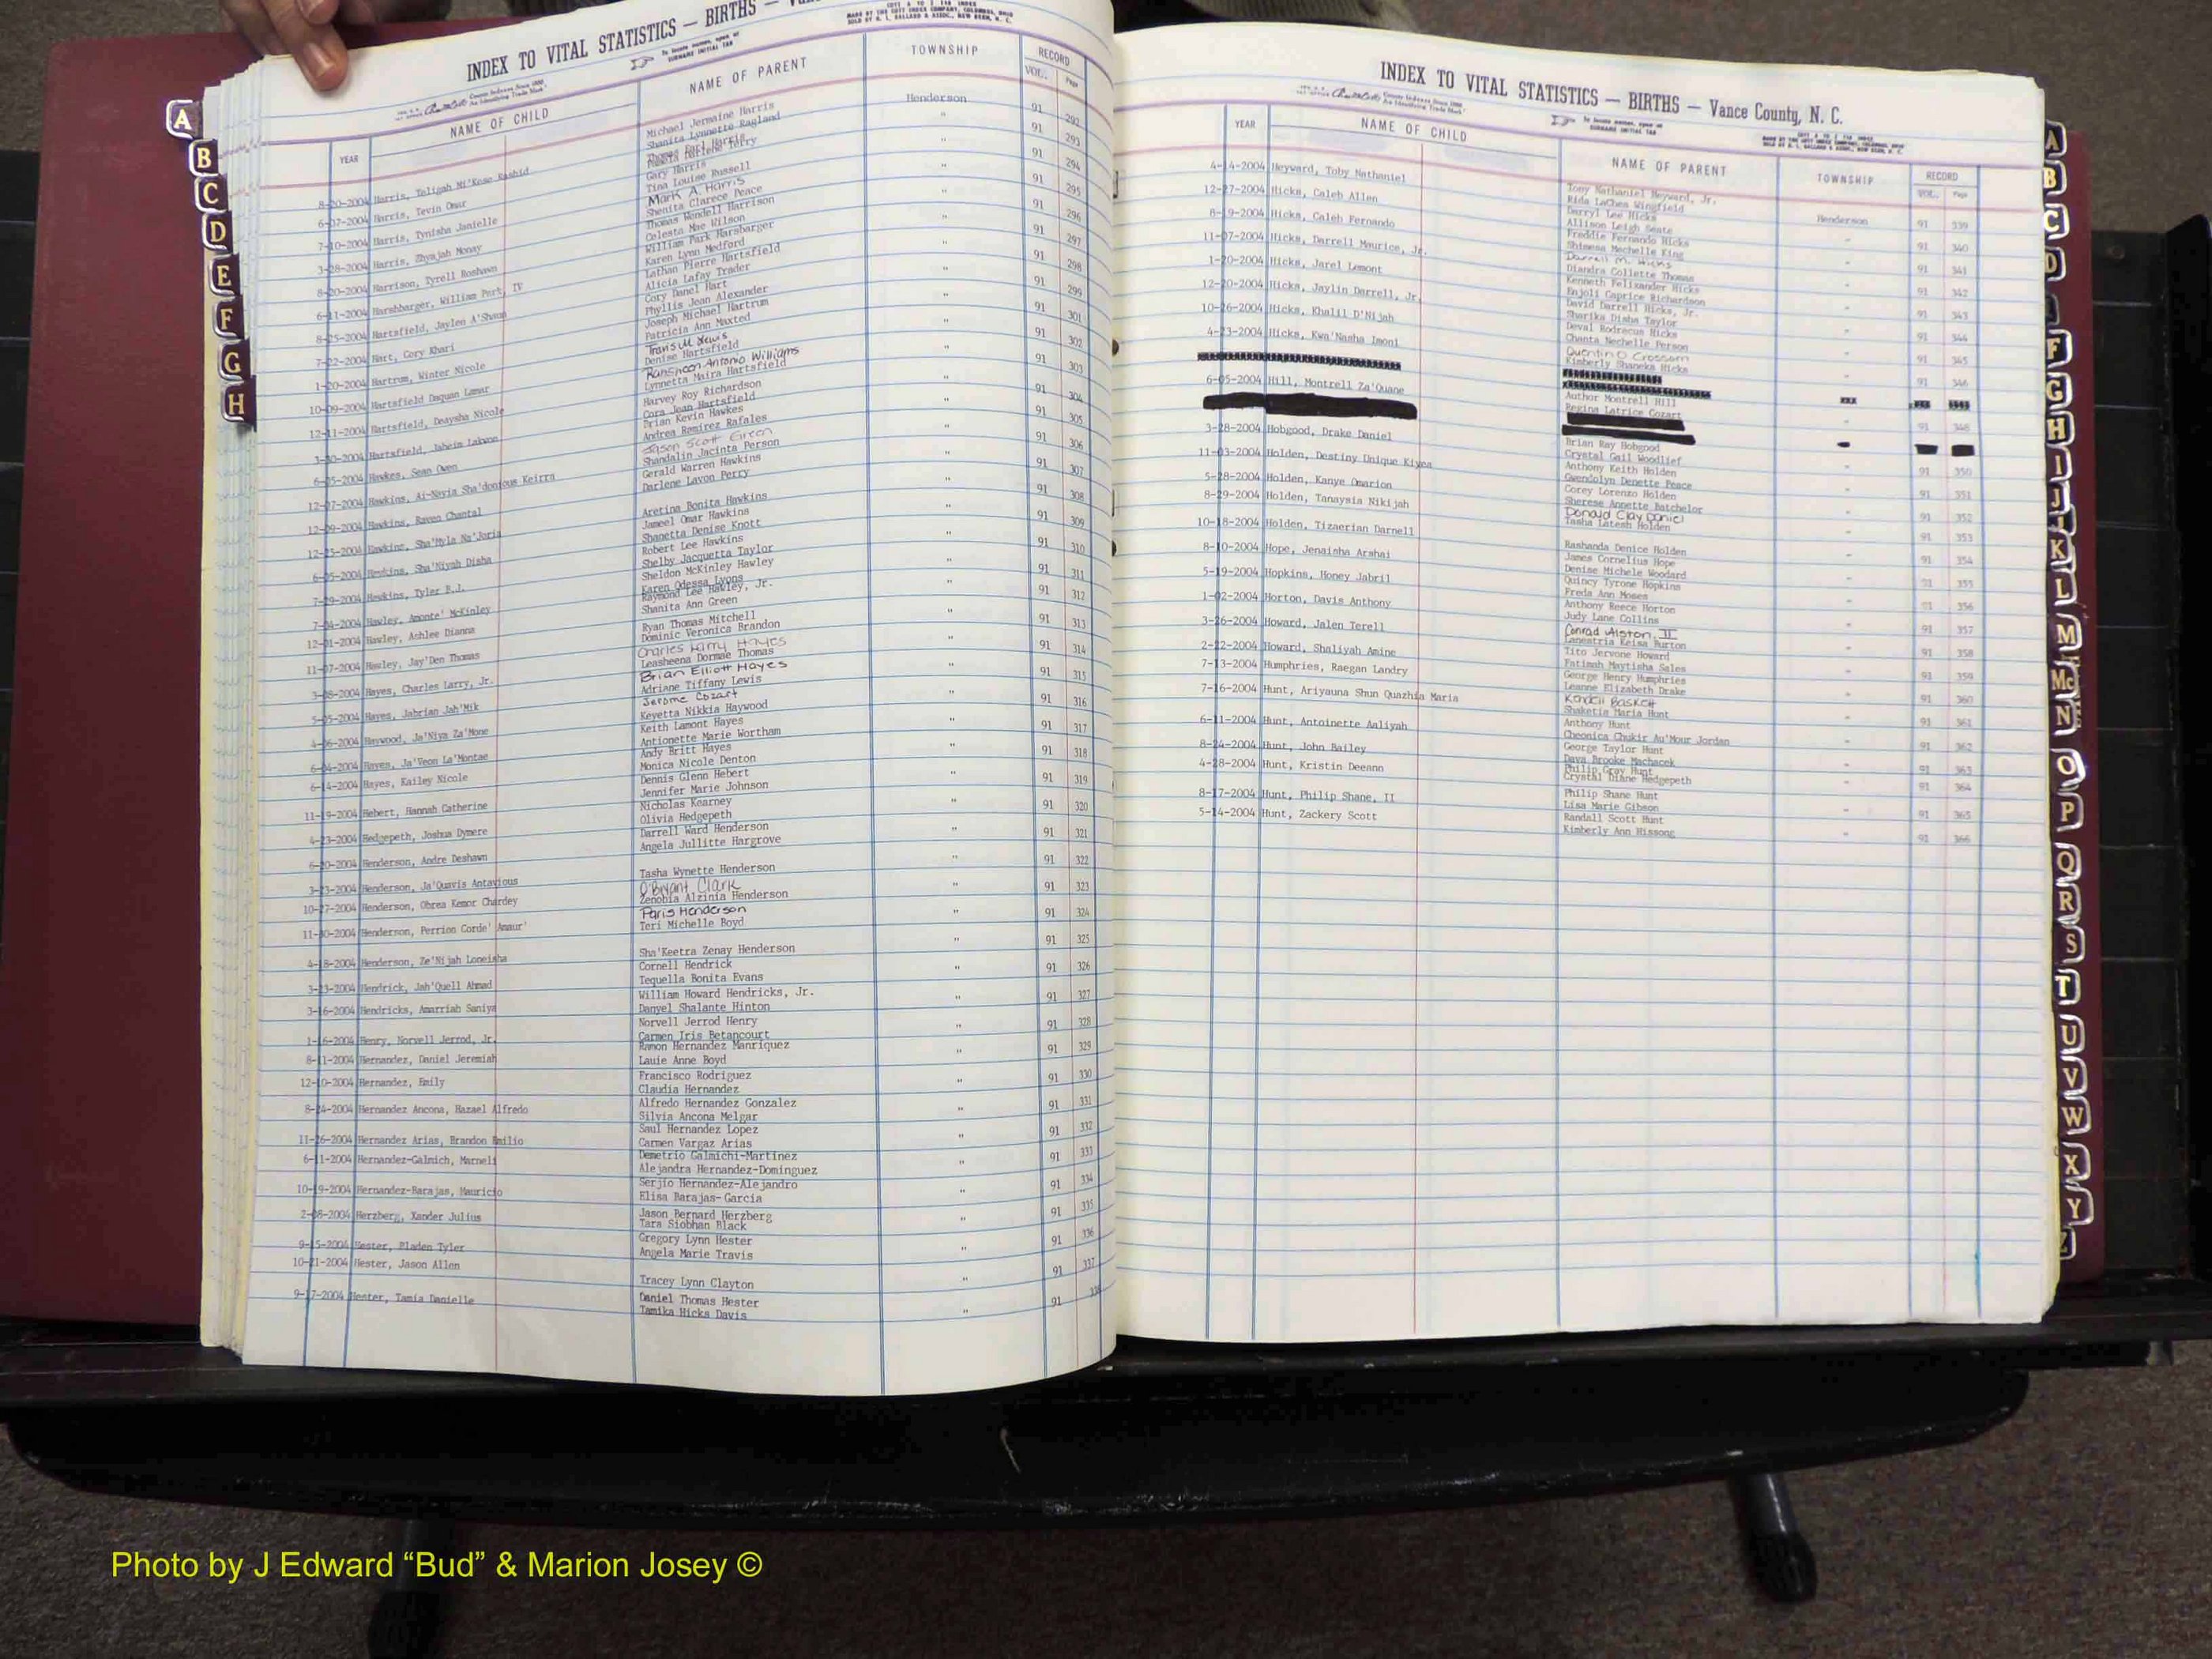 INDEX TO VITAL STATISTICS — BIRTHS —
NAME OF CHILD
NAME OF PARENT
TOWNSHIP
RECORD
VOL.
Page
YEAR
Henderson
8-20-2004 Harris, Taligah Mi'Kose Rashid Michael Jermaine Harris 91 292
Shanita Lynnette Ragland
6-07-2004 Harris, Tevin Omar Thomas Earl Harris " 91 293
Pamela Darlene Terry
7-10-2004 Harris, Tynisha Janielle Gary Harris " 91 294
Tina Louise Russell
3-28-2004 Harris, Zhyajah Monay Mark A. Harris " 91 295
Shenita Clarece Peace
8-20-2004 Harrison, Tyrell Roshawn Thomas Wendell Harrison " 91 296
Celesta Mae Wilson
6-11-2004 Harshbarger, William Park, IV William Park Harshbarger " 91 297
Karen Lynn Medford
8-25-2004 Hartsfield, Jaylen A'Shaun Lathan Pierre Hartsfield " 91 298
Alicia Lafay Trader
7-22-2004 Hart, Cory Khari Cory Danel Hart " 91 299
Phyllis Jean Alexander
1-20-2004 Hartrum, Winter Nicole Joseph Michael Hartrum " 91 301
Patricia Ann Maxted
10-09-2004 Hartsfield Daquan Lamar Travis M Lewis " 91 302
Denise Hartsfield
12-11-2004 Hartsfield, Deaysha Nicole Antonio Williams " 91 303
Lynnetta Maira Hartsfield
3-30-2004 Hartsfield, Jaheim Harvey Roy Richardson " 91 304
Cora Jean Hartsfield
6-25-2004 Hawkes, Sean Owen Brian Kevin Hawkes " 91 305
Andrea Ramirez Rafales
12-07-2004 Hawkins, Sha'donious Keirra Jason Scott Green " 91 306
Shandalin Jacinta Person
12-09-2004 Hawkins, Raven Chantal Gerald Warren Hawkins " 91 307
Darlene Lavon Perry
12-25-2004 Hawkins, Sha'Myla Na'Joria Aretina Bonita Hawkins " 91 308
6-05-2004 Hawkins, Sha'Niyah Disha Jameel Omar Hawkins " 91 309
Shanetta Denise Knott
7-29-2004 Hawkins, Tyler B.J. Robert Lee Hawkins " 91 310
Shelby Jacquetta Taylor
7-04-2004 Hawley, Amonte' McKinley Sheldon McKinley Hawley " 91 311
Karen Odessa Lyons
12-01-2004 Hawley, Ashlee Dianna Raymond Lee Hawley, Jr. " 91 312
Shanita Ann Green
11-07-2004 Hawley, Jay'Den Thomas Ryan Thomas Mitchell " 91 313
Dominic Veronica Brandon
3-08-2004 Hayes, Charles Larry, Jr. Charles Larry Hayes " 91 314
Leasheena Dormae Thomas
5-05-2004 Hayes, Jabrian Jah'Mik Brian Elliott Hayes " 91 315
Adriane Tiffany Lewis
4-06-2004 Haywood, Ja'Niya Za'Mone Jerome Cozart " 91 316
Keyetta Nikkia Haywood
6-04-2004 Hayes, Ja'Veon La'Montae Keith Lamont Hayes " 91 317
Antionette Marie Wortham
6-14-2004 Hayes, Kailey Nicole Andy Britt Hayes " 91 318
Monica Nicole Denton
11-19-2004 Hebert, Hannah Catherine Dennis Glenn Hebert " 91 319
Jennifer Marie Johnson
4-23-2004 Hedgepeth, Joshua Dymere Nicholas Kearney " 91 320
Olivia Hedgepeth
6-20-2004 Henderson, Andre Deshawn Darrell Ward Henderson " 91 321
Angela Jullitte Hargrove
3-23-2004 Henderson, Ja'Quavis Antavious Tasha Wynette Henderson " 91 322
10-27-2004 Henderson, Obrea Kemor Chardey O'Bryant Clark " 91 323
Zenobia Alzinia Henderson
11-30-2004 Henderson, Perrion Corde' Amaur' Paris Henderson " 91 324
Teri Michelle Boyd
4-18-2004 Henderson, Ze'Nijah Loneisha Sha'Keetra Zenay Henderson " 91 325
3-23-2004 Hendrick, Jah'Quell Ahmad Cornell Hendrick " 91 326
Tequella Bonita Evans
3-16-2004 Hendricks, Amarriah Saniya William Howard Hendricks, Jr. " 91 327
Danyel Shalante Hinton
1-16-2004 Henry, Norvell Jerrod, Jr. Norvell Jerrod Henry " 91 328
Carmen Iris Betancourt
8-11-2004 Hernandez, Daniel Jeremiah Ramon Hernandez Manriquez " 91 329
Lauie Anne Boyd
12-10-2004 Hernandez, Emily Francisco Rodriguez " 91 330
Claudia Hernandez
8-24-2004 Hernandez Ancona, Hazael Alfredo Alfredo Hernandez Gonzalez " 91 331
Silvia Ancona Melgar
11-26-2004 Hernandez Arias, Brandon Emilio Saul Hernandez Lopez " 91 332
Carmen Vargaz Arias
6-11-2004 Hernandez-Galmich, Marneli Demetrio Galmichi-Martinez " 91 333
Alejandra Hernandez-Dominguez
10-19-2004 Hernandez-Barajas, Mauricio Serjio Hernandez-Alejandro " 91 334
Elisa Barajas-Garcia
2-08-2004 Herzberg, Xander Julius Jason Bernard Herzberg " 91 335
Tara Siobhan Black
9-15-2004 Hester, Pladen Tyler Gregory Lynn Hester " 91 336
Angela Marie Travis
10-21-2004 Hester, Jason Allen Tracey Lynn Clayton " 91 337
9-17-2004 Hester, Tamia Danielle Daniel Thomas Hester " 91 338
Tamika Hicks Davis
INDEX TO VITAL STATISTICS — BIRTHS — Vance County, N. C.
YEAR
NAME OF CHILD
NAME OF PARENT
TOWNSHIP
RECORD
VOL.
Page
4-14-2004 Heyward, Toby Nathaniel Tony Nathaniel Heyward, Jr. Henderson 91 339
Rida LaChea Wingfield
12-27-2004 Hicks, Caleb Allen Darryl Lee Hicks " 91 340
Allison Leigh Seate
8-19-2004 Hicks, Caleb Fernando Freddie Fernando Hicks " 91 341
Shimesa Mechelle King
11-07-2004 Hicks, Darrell Maurice, Jr. Darrell M. Hicks " 91 342
Diandra Collette Thomas
1-20-2004 Hicks, Jarel Lemont Kenneth Felixander Hicks " 91 343
Enjoli Caprice Richardson
12-20-2004 Hicks, Jaylin Darrell, Jr. David Darrell Hicks, Jr. " 91 344
Sharika Disha Taylor
10-26-2004 Hicks, Khalil D'Nijah Deval Rodrecus Hicks " 91 345
Chanta Nechelle Person
4-23-2004 Hicks, Kwa'Nasha Imoni Quentin O Crossom " 91 346
Kimberly Shaneka Hicks
6-05-2004 Hill, Montrell Za'Quane Author Montrell Hill " 91 348
Regina Latrice Cozart
3-28-2004 Hobgood, Drake Daniel Brian Ray Hobgood " 91 350
Crystal Gail Woodlief
11-03-2004 Holden, Destiny Unique Kiyea Anthony Keith Holden " 91 351
Gwendolyn Denette Peace
5-28-2004 Holden, Kanye Omarion Corey Lorenzo Holden " 91 352
Sherese Annette Batchelor
8-29-2004 Holden, Tanaysia Nikijah Donald Clay Daniel " 91 353
Tasha Latesh Holden
10-18-2004 Holden, Tizaerian Darnell Rashanda Denice Holden " 91 354
8-10-2004 Hope, Jenaisha Arshai James Cornelius Hope " 91 355
Denise Michele Woodard
5-19-2004 Hopkins, Honey Jabril Quincy Tyrone Hopkins " 91 356
Freda Ann Moses
1-02-2004 Horton, Davis Anthony Anthony Reece Horton " 91 357
Judy Lane Collins
3-26-2004 Howard, Jalen Terell Conrad Alston, II " 91 358
Laneatria Keisa Burton
2-22-2004 Howard, Shaliyah Amine Tito Jervone Howard " 91 359
Fatimah Maytisha Sales
7-13-2004 Humphries, Raegan Landry George Henry Humphries " 91 360
Leanne Elizabeth Drake
7-16-2004 Hunt, Ariyauna Shun Quazhia Maria Kendell Baskett " 91 361
Shaketia Maria Hunt
6-11-2004 Hunt, Antoinette Aaliyah Anthony Hunt " 91 362
Cheonica Chukir Au'Mour Jordan
8-24-2004 Hunt, John Bailey George Taylor Hunt " 91 363
Dava Brooke Machacek
4-28-2004 Hunt, Kristin Deeann Philip Gray Hunt " 91 364
Crystal Diane Hedgepeth
8-17-2004 Hunt, Philip Shane, II Philip Shane Hunt " 91 365
Lisa Marie Gibson
5-14-2004 Hunt, Zackery Scott Randall Scott Hunt " 91 366
Kimberly Ann Hissong
A
B
C
D
E
F
G
H
A
B
C
D
F
G
H
I
J
K
L
M
Mc
N
O
P
Q
R
S
T
U
V
W
X
Y
Z
Photo by J Edward “Bud” & Marion Josey ©